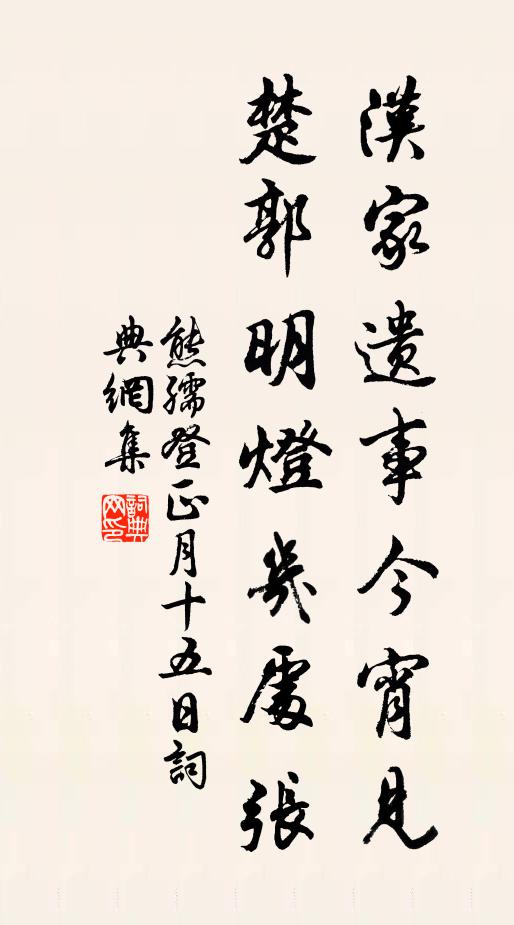 漢家遺事今宵見
楚郭明燈幾處張
熊孺登正月十五日詞
典網集
詞典網印